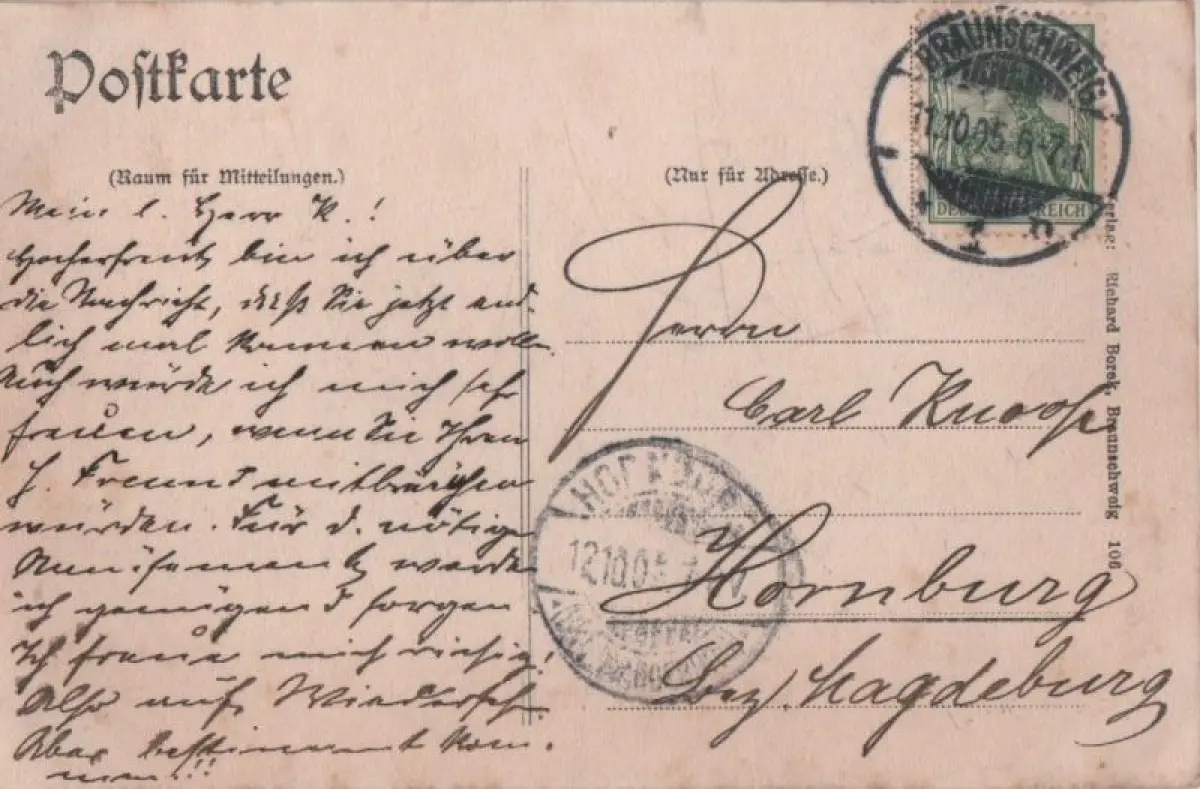 Postkarte
(Raum für Mitteilungen.)
(Nur für Adresse.)
BRAUNSCHWEIG
11.10.05.6-7.N.
DEUTSCHES REICH
Mein l. Herr K.!
Hocherfreut bin ich über
die Nachricht, daß Sie jetzt end-
lich mal kommen wollen.
Auch würde ich mich sehr
freuen, wenn Sie Ihren
H. Freund mitbrächten
würden. Für d. nötige
Amüsement werde
ich genügend sorgen.
Ich freue mich riesig!
Also auf Wiederseh.
Aber bestimmt kom-
men!!!
Herrn
Carl Knoop
Hornburg
Bez. Magdeburg
12.10.05
Verlag: Richard Borek, Braunschweig 106